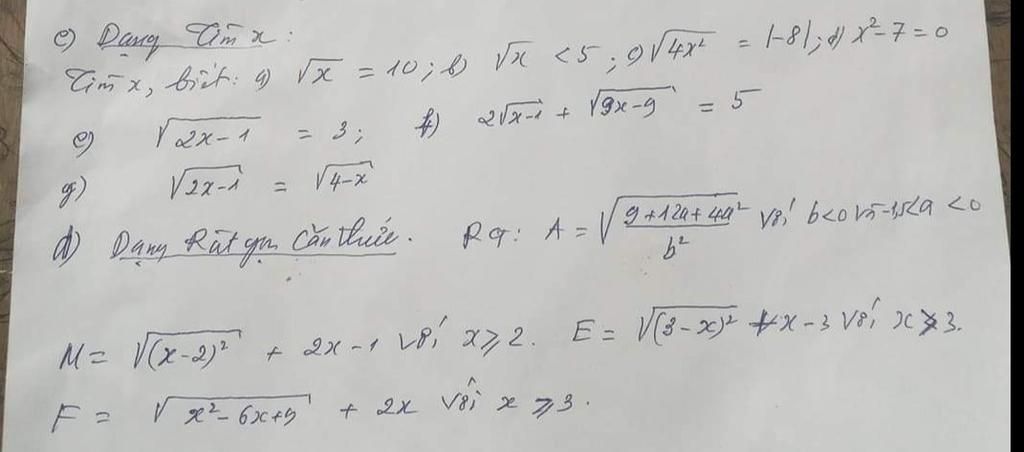 c) Dạng Tìm x:
Tìm x, biết: a) √x = 10; b) √x < 5; c) √4x² = |-8|; d) x² - 7 = 0
e) √2x-1 = 3; f) 2√x-1 + √9x-9 = 5
g) √2x-1 = √4-x
d) Dạng Rút gọn Căn thức. RG: A = √(9+12a+4a²)/b² với b<0 và -1,5<a<0
M = √(x-2)² + 2x - 1 với x ⩾ 2. E = √(3-x)² + x - 3 với x > 3.
F = √x²-6x+9 + 2x với x ⩾ 3.